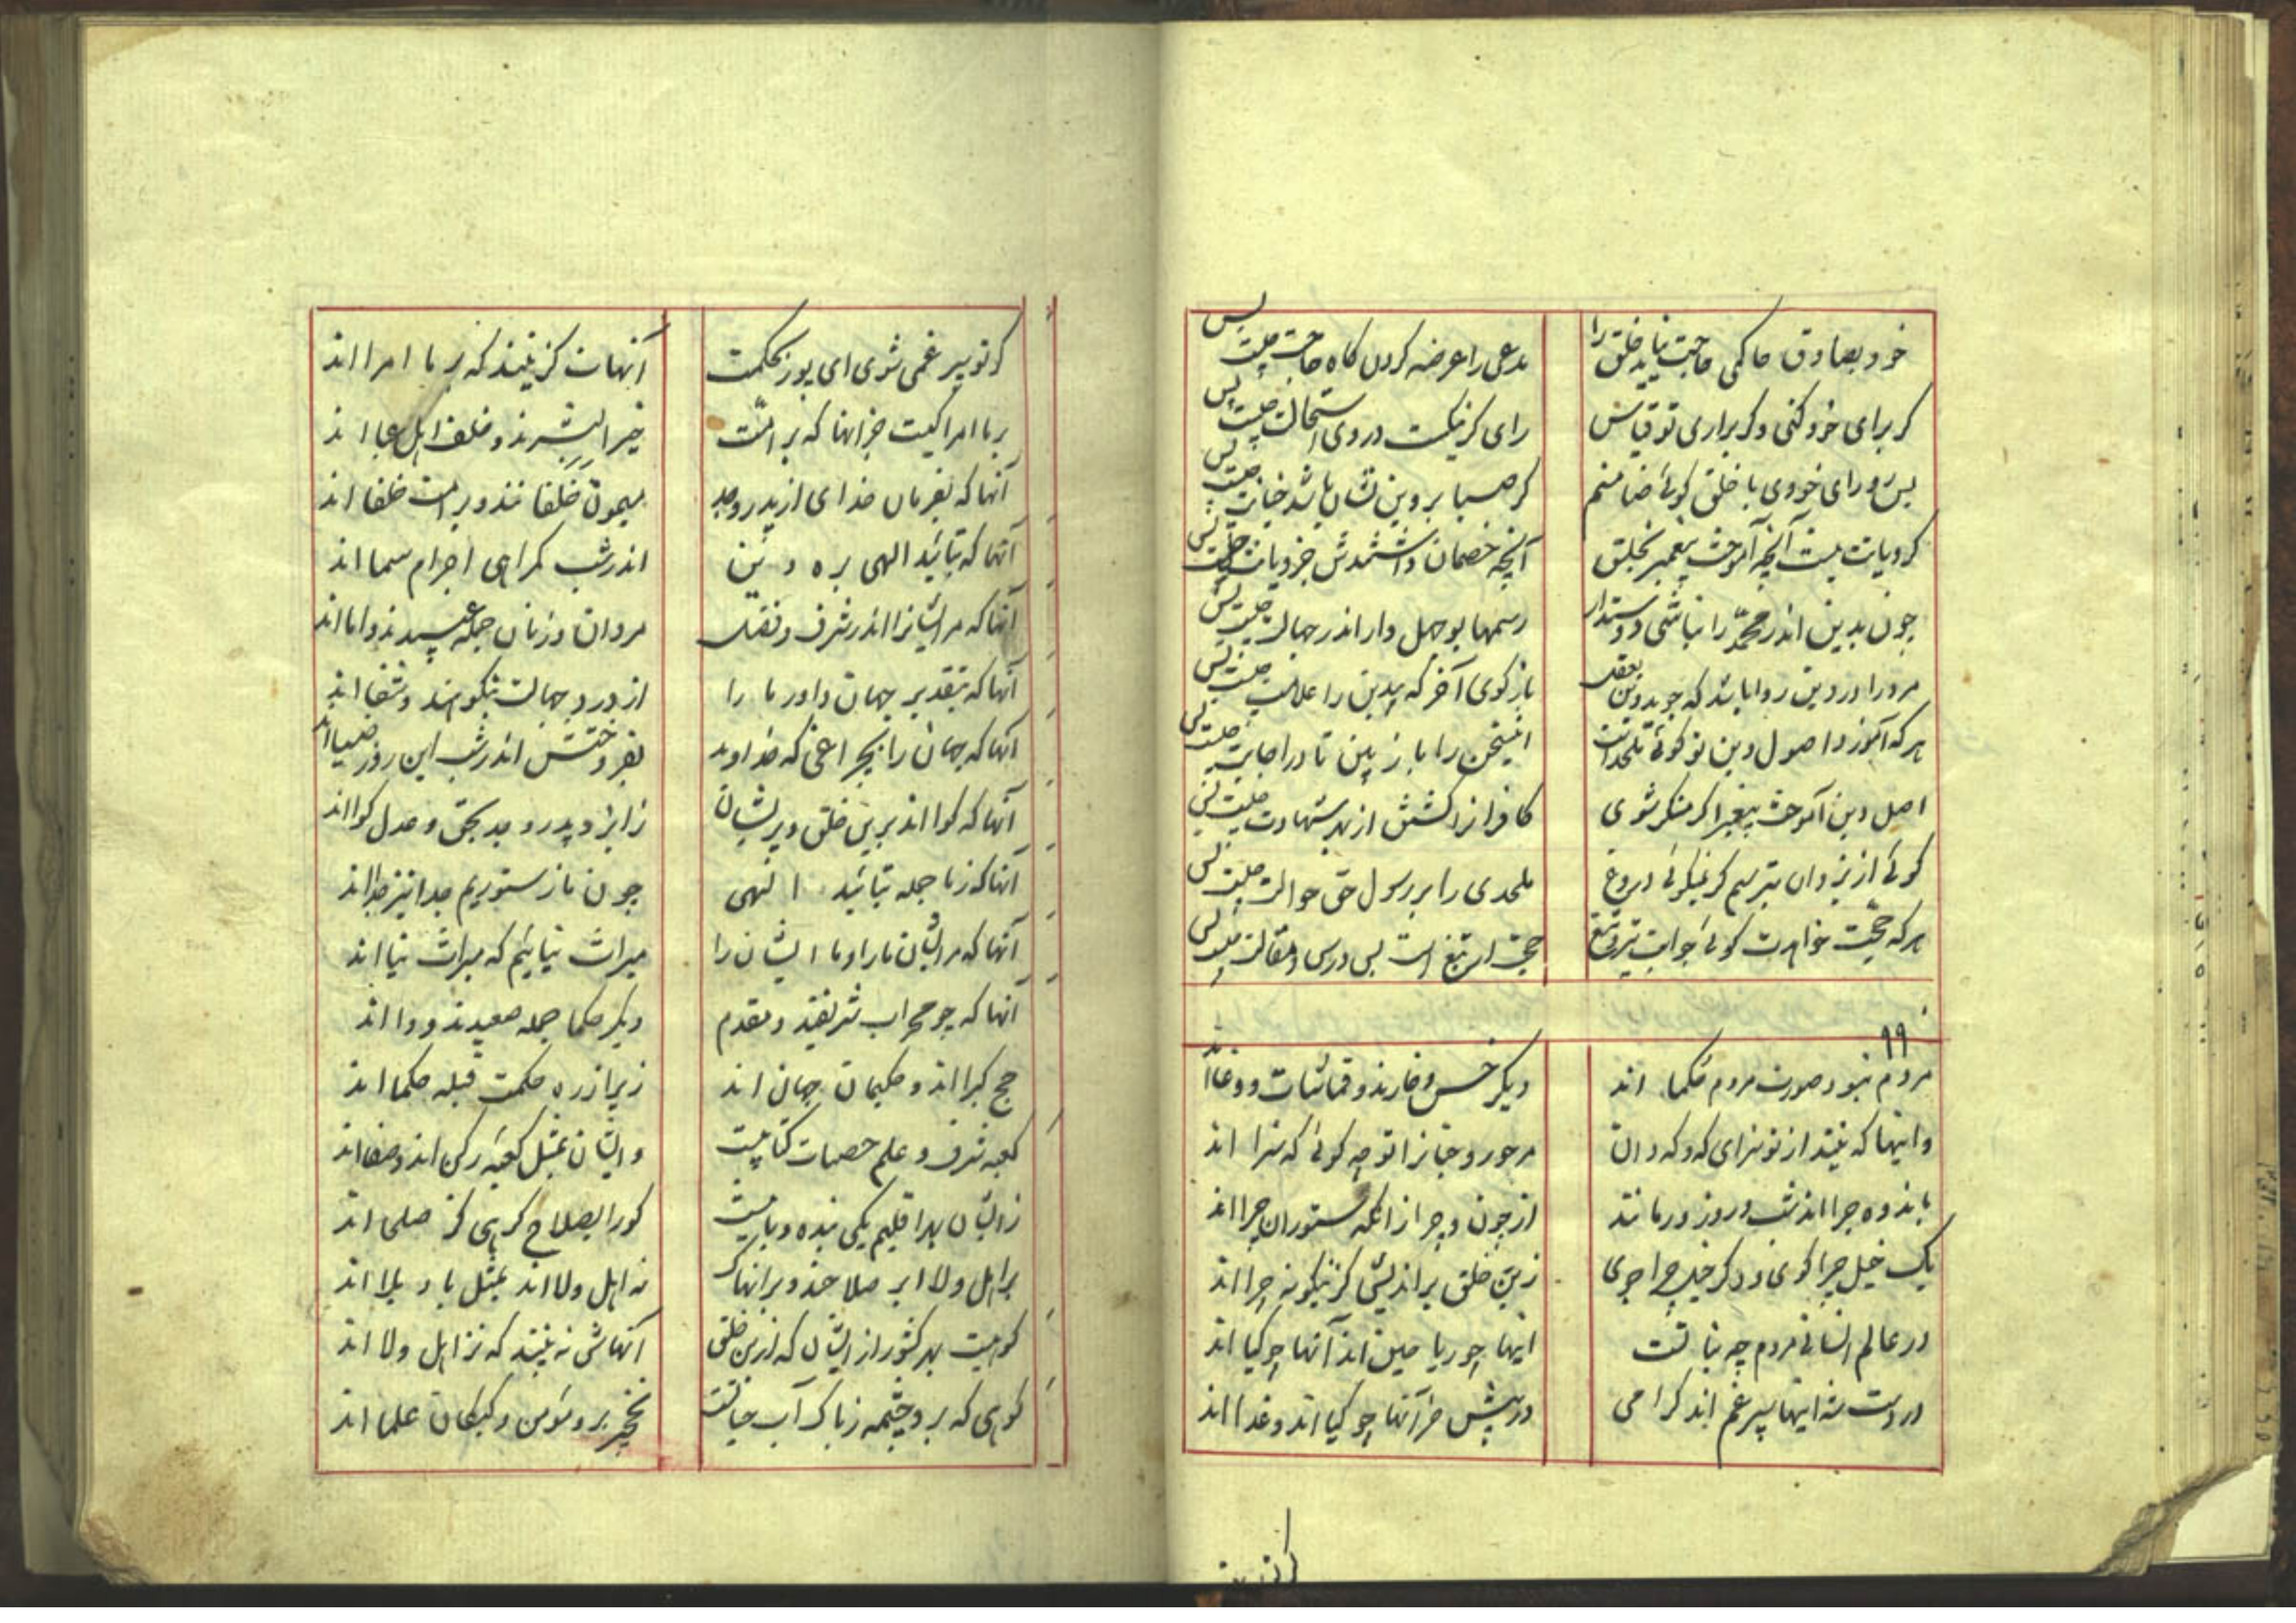 خود بصادق حاکمی حاجت نیاید خلق را
مدعی را عرضه کردن کاه حاجت چیست پس
کر برای خود کنی و کر براری تو قیاس
رای کر نیکست در وی استحالت چیست پس
پس رو رای خودی با خلق کوئی ضامنم
آنچه خصمان داشتندش جز دیانت چیست پس
چون بدین اندر محمد را نباشی دوستدار
رسمها بوجهل وار اندر جهالت چیست پس
مرورا در دین روا باشد که جوید دین بعقل
باز کوی آخر که بیدین را علامت چیست پس
هر که آموزد اصول دین تو کوئی ملحد است
این سخن را باز بین تا در اجابت چیست پس
اصل دین آموخت پیغمبر اکر منکر شوی
کافرانرا کشتن از بهر شهادت چیست پس
کوئی از یزدان بترسم کر نیکوئی دروغ
ملحدی را بر رسول حق حوالت چیست پس
هر که حجت خواهدت کوئی جوابت تیر تیغ
حجت ار تیغ است پس درس و مقالت چیست پس
۹۹
مردم نبود صورت مردم حکما اند
دیکر خس و خارند و قماشات و دغا اند
وانها که نیند از تو سزای که و که دان
مرحور و جنانرا تو چه کوئی که سزا اند
باندوه چرا اند شب و روز در مانند
از چون و چرا زانکه ستوران چرا اند
یک خیل چرا کوی و دکر خیل چرا جوی
زین خلق براندیش کز نیکونه چرا اند
در عالم انسانی مردم چه نباتست
اینها چو ریاحین اند آنها چو کیا اند
در دست شه اینها سپر غم اند کرامی
در پیش خر آنها چو کیا اند و غذا اند
کر تو سپر غمی شوی ای پور بحکمت
آنهات کزینند که بر ما امرا اند
بر ما امرا کیست جز آنها که بر امت
خیر البشرند و خلف اهل عبا اند
آنها که بفرمان خدای از پدر و جد
میمون خلفا اند و بر امت خلفا اند
آنها که بتائید الهی بره دین
اندر شب کمراهی اجرام سما اند
آنها که مر ایشانرا اندر شرف و فضل
مردان و زنان جمله عبیدند و اما اند
آنها که بتقدیر جهان داور ما را
از درد جهالت بنکو پند و شفا اند
آنها که جهان را بچراغی که خداوند
بفروختش اندر شب این روز ضیا اند
آنها که کوا اند برین خلق و بر ایشان
زایزد و پدر و جد بحق و عدل کوا اند
آنها که ز ما جمله بتائید الهی
آنها که مر ایشان ما را و ما ایشان را
میراث نیائیم که میراث نیا اند
آنها که چو محراب شریفند و مقدم
دیکر حکما جمله صعیدند و ورا اند
حج کبرا اند و حکیمان جهان اند
زیرا ز ره حکمت قبله حکما اند
کعبه شرف و علم خصمات کتابیست
وایشان بمثل کعبه رکن اند و صفا اند
زایشان بهر اقلیم یکی بنده و بانیست
کورا بصلاح کرهی کز صلحا اند
بر اهل ولا ابر صلاحند و بر انها ک
نه اهل ولا اند بمثل باد بلا اند
کوهیست بهر کشور از ایشان که ازین خلق
آنهاش نه بینند که نز اهل ولا اند
کوهی که برو چشمه ز پاک آب حیاتست
نخجیر برو مؤمن و کبکان علما اند